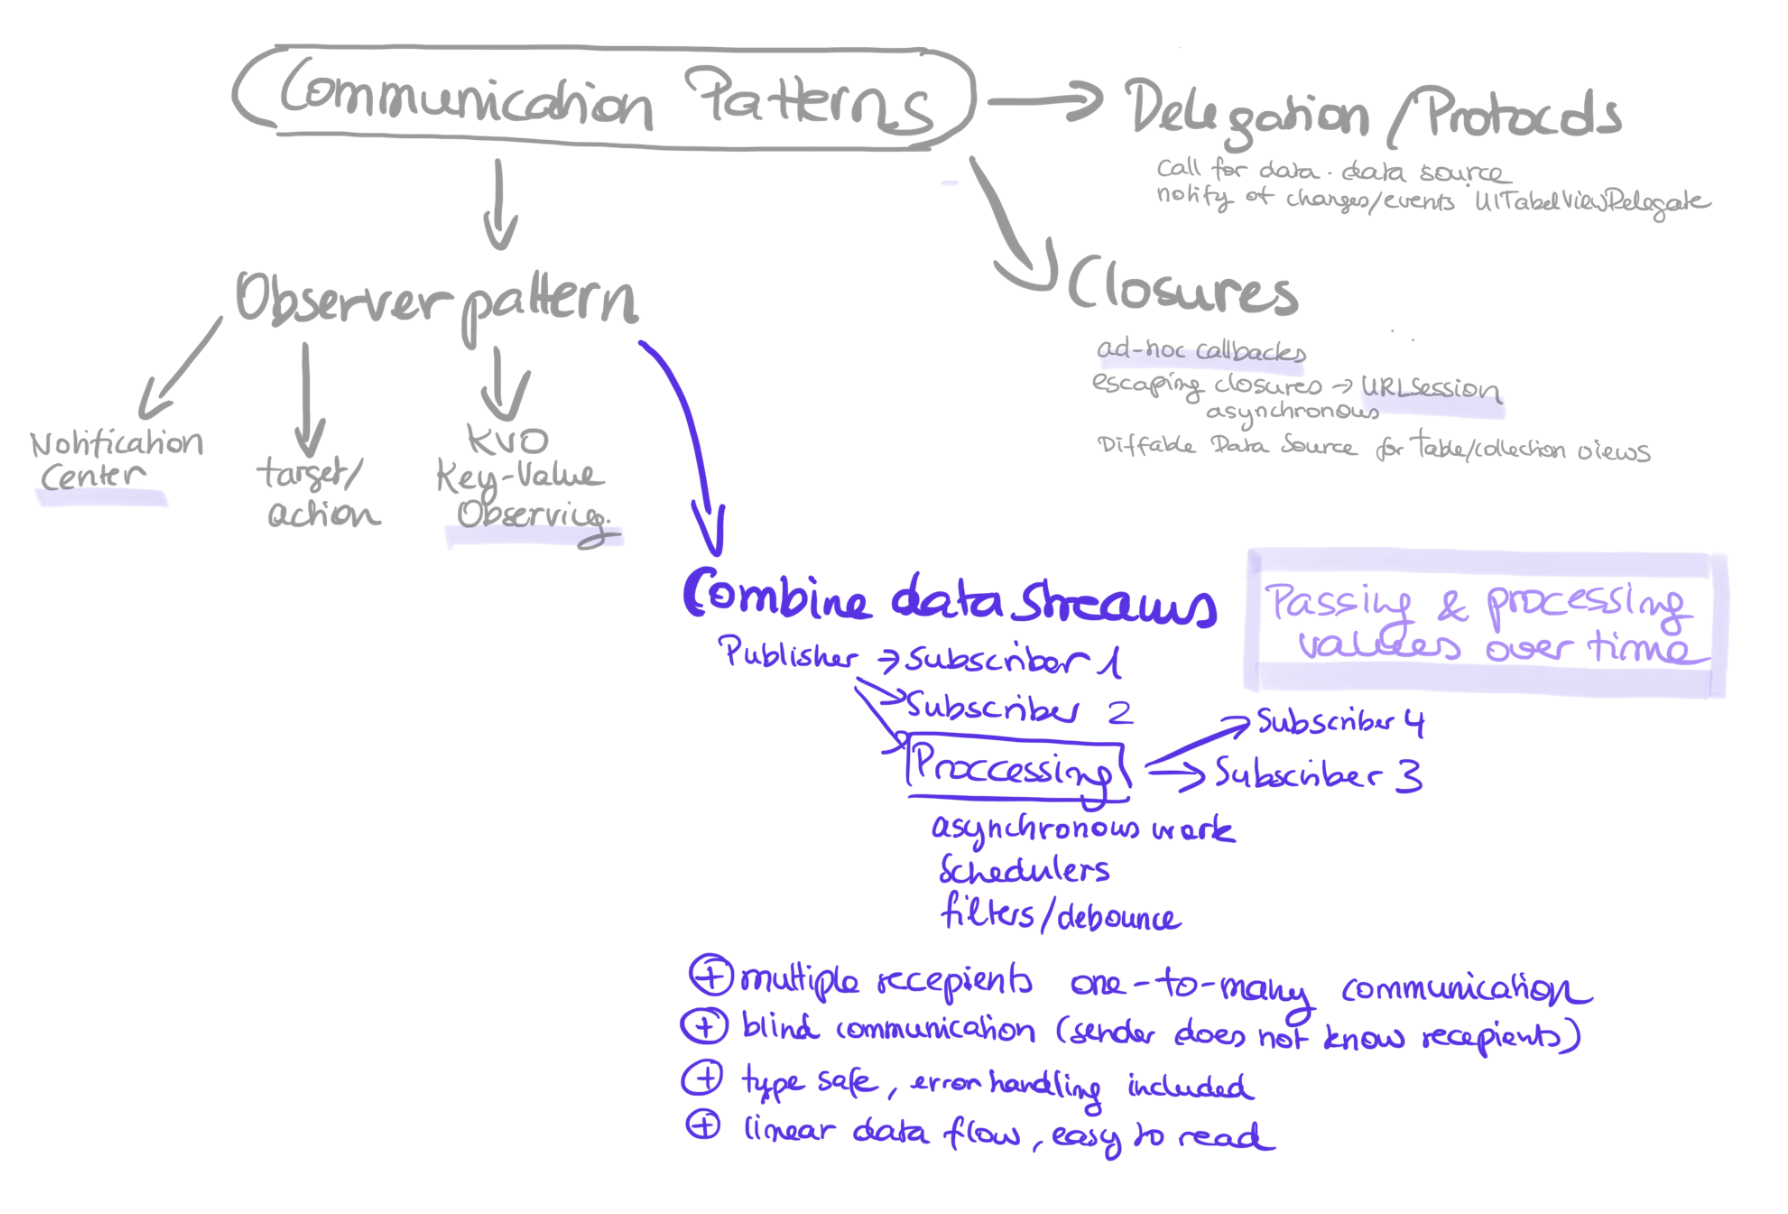 Communication Patterns
Delegation/Protocols
Call for data. data source
notify of changes/events UITabelViewDelegate
Closures
ad-hoc callbacks
escaping closures → URLSession
asynchronous
Diffable Data Source for table/collection views
Observer pattern
Notification
Center
target/
action
KVO
Key-Value
Observing.
Combine data streams
Passing & processing
values over time
Publisher → Subscriber 1
Subscriber 2
Proccessing
Subscriber 4
Subscriber 3
asynchronous work
Schedulers
filters/debounce
+ multiple recepients one-to-many communication
+ blind communication (sender does not know recepients)
+ type safe, error handling included
+ linear data flow, easy to read